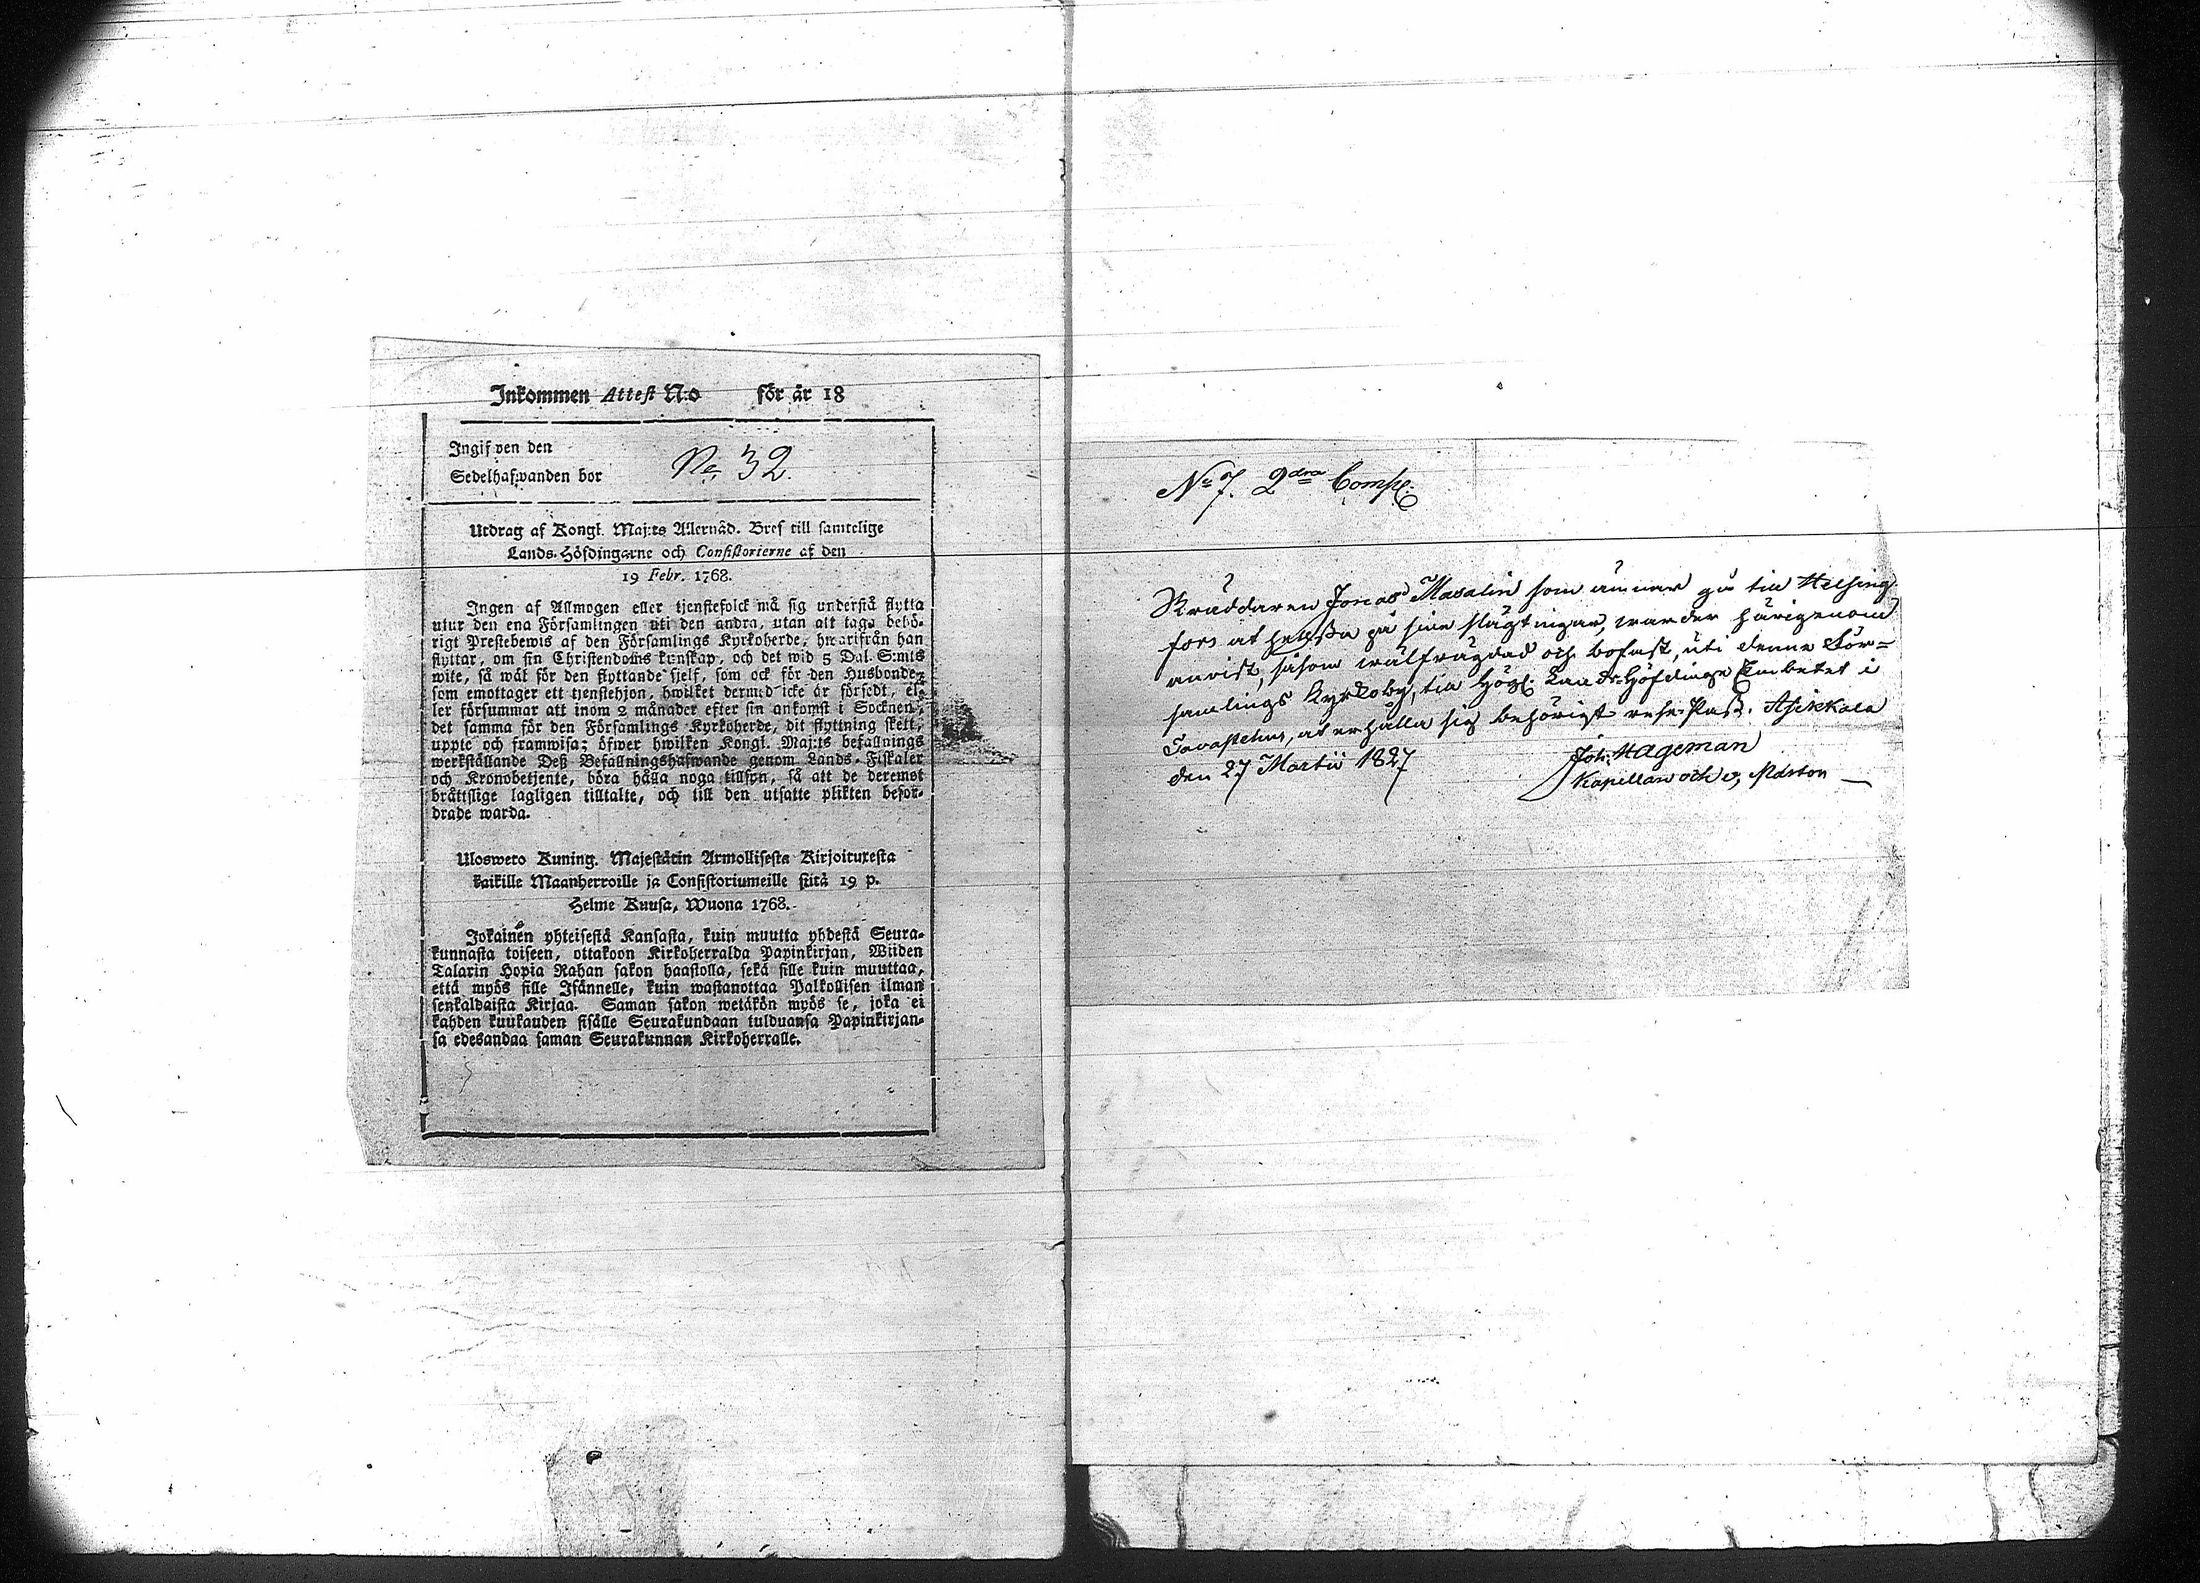 Inkommen Attest N:o för år 18
Ingifven den
Sedelhafwanden bor
No 32.
Utdrag af Kongl. Maj:ts Allernåd. Bref till samtelige
Lands-Höfdingarne och Consistorierne af den
19 Febr. 1768.
Ingen af Allmogen eller tjenstefolck må sig understå flytta
utur den ena Församlingen uti den andra, utan att taga behö-
rigt Prestebewis af den Församlings Kyrkoherde, hwarifrån han
flyttar, om sin Christendoms kunskap, och det wid 5 Dal. S:mts
wite, så wäl för den flyttande sjelf, som ock för den Husbonde,
som emottager ett tjenstehjon, hwilket dermed icke är försedt, el-
ler försummar att inom 2 månader efter sin ankomst i Socknen,
det samma för den Församlings Kyrkoherde, dit flyttning skett,
uppte och framwisa; öfwer hwilken Kongl. Maj:ts befallnings
werkställande Deß Befallningshafwande genom Lands-Fiskaler
och Kronobetjente, böra hålla noga tillsyn, så att de deremot
bråttslige lagligen tilltalte, och till den utsatte plikten befor-
drade warda.
Uloswero Kuning. Majestätin Armollisesta Kirjoituxesta
kaikille Maanherroille ja Consistoriumeille siitä 19 p.
Helme Kuusa, Wuona 1768.
Jokainen yhteisestä Kansasta, kuin muutta yhdestä Seura-
kunnasta toiseen, ottakoon Kirkoherralda Papinkirjan, Wiiden
Talarin Hopia Rahan sakon haastolla, sekä sille kuin muuttaa,
että myös sille Isännelle, kuin wastanottaa Palkollisen ilman
senkaldaista Kirjaa. Saman sakon wetäkön myös se, joka ei
kahden kuukauden sisälle Seurakundaan tulduansa Papinkirjan-
sa edesandaa saman Seurakunnan Kirkoherralle.
No 7. 2dra Comp.
Skräddaren Jonas Masalin som ämnar gå till Helsing-
fors at helßa på sine slägtingar, warder härigenom
anvist, såsom wälfrägdad och bofast, uti denne För-
samlings Kyrkoby, till Högl. Lands-Höfdinge Embetet i
Tavastehus, at erhålla sig behörigt rese-Paß. Asikkala
den 27 Martii 1827
Joh. Hageman
Kapellan och v. Pastor